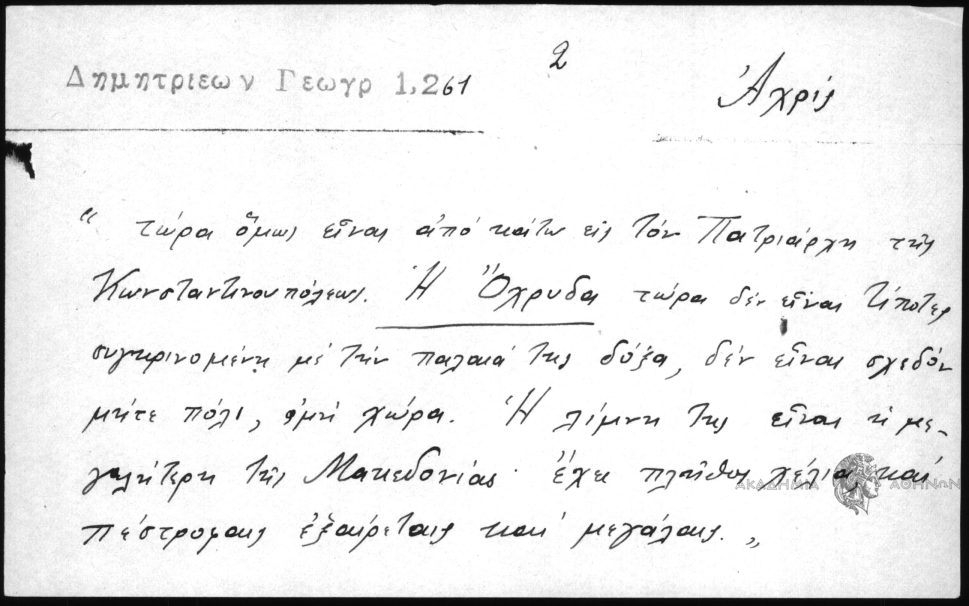 2
Δημητριεων Γεωγρ 1,261
Ἀχρίς
“ τώρα ὅμως εἶναι ἀπό κάτω εἰς τόν Πατριάρχη τῆς
Κωνσταντινουπόλεως. Ἡ Ὄχρυδα τώρα δέν εἶναι τίποτες
συγκρινομένη μέ τήν παλαιά της δόξα, δέν εἶναι σχεδόν
μήτε πόλι, ἀμή χώρα. Ἡ λίμνη της εἶναι ἡ με-
γαλήτερη τῆς Μακεδονίας· ἔχει πλῆθος χέλια καί
πέστροφαις ἐξαίρεταις καί μεγάλαις. „
ΑΚΑΔΗΜΙΑ ΑΘΗΝΩΝ